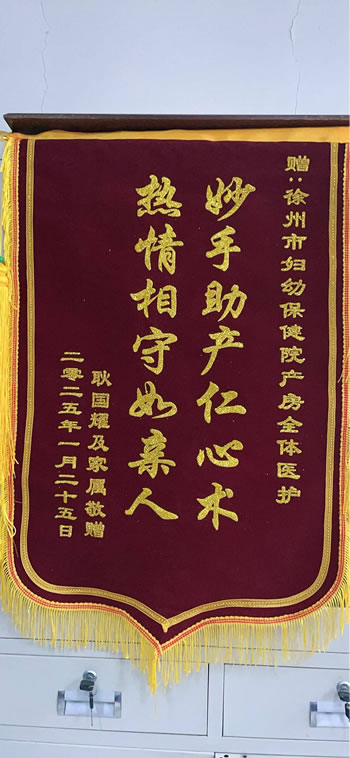 赠:徐州市妇幼保健院产房全体医护
妙手助产仁心术
热情相守如亲人
耿国耀及家属敬赠
二零二五年一月二十五日